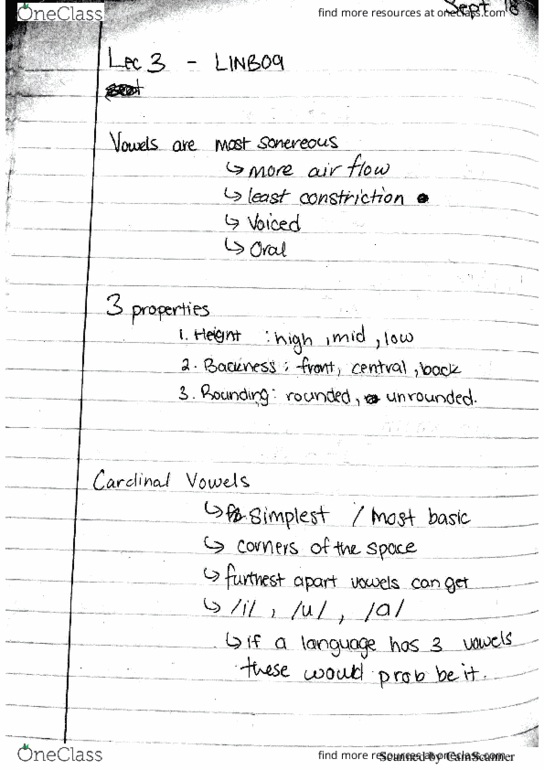 OneClass
find more resources at oneclass.com
Sept 18
Lec 3 - LINB09
Vowels are most sonereous
↳ more air flow
↳ least constriction
↳ Voiced
↳ Oral
3 properties
1. Height : high, mid, low
2. Backness : front, central, back
3. Rounding : rounded, unrounded.
Cardinal Vowels
↳ Simplest / most basic
↳ corners of the space
↳ furthest apart vowels can get
↳ /i/ , /u/ , /a/
↳ if a language has 3 vowels
these would prob be it.
OneClass
find more resources at oneclass.com
Scanned by CamScanner